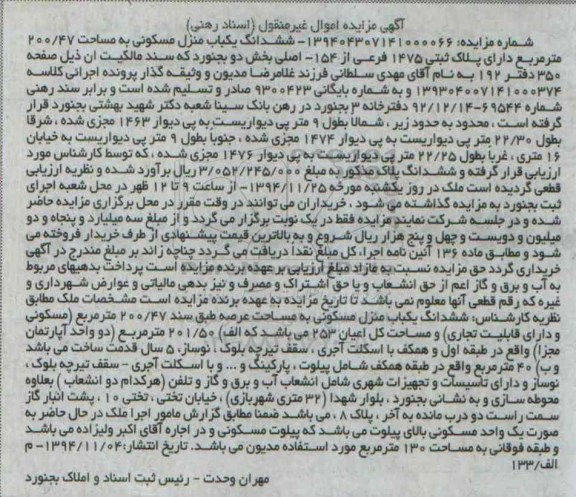 آگهی مزایده اموال غیرمنقول (اسناد رهنی)
شماره مزایده: ۱۳۹۴۰۴۳۰۷۱۴۱۰۰۰۰۶۶- ششدانگ یکباب منزل مسکونی به مساحت ۲۰۰/۴۷
مترمربع دارای پلاک ثبتی ۱۴۷۵ فرعی از ۱۵۴- اصلی بخش دو بجنورد که سند مالکیت آن ذیل صفحه
۳۵۰ دفتر ۱۹۲ به نام آقای مهدی سلطانی فرزند غلامرضا مدیون و وثیقه گذار پرونده اجرائی کلاسه
۱۳۹۳۰۴۰۰۷۱۴۱۰۰۰۳۷۴ و به شماره بایگانی ۹۳۰۰۴۲۳ صادر و تسلیم شده است و برابر سند رهنی
شماره ۶۹۵۴۴-۹۲/۱۲/۱۴ دفترخانه ۳ بجنورد در رهن بانک سینا شعبه دکتر شهید بهشتی بجنورد قرار
گرفته است ، محدود به حدود زیر ، شمالا بطول ۹ متر پی دیواریست به پی دیوار ۱۴۶۳ مجزی شده ، شرقا
بطول ۲۲/۳۰ متر پی دیواریست به پی دیوار ۱۴۷۴ مجزی شده ، جنوبا بطول ۹ متر پی دیواریست به خیابان
۱۶ متری ، غربا بطول ۲۲/۲۵ متر پی دیواریست به پی دیوار ۱۴۷۶ مجزی شده ، که توسط کارشناس مورد
ارزیابی قرار گرفته و ششدانگ پلاک مذکور به مبلغ ۳/۰۵۲/۲۴۵/۰۰۰ ریال برآورد شده و نظریه ارزیابی
قطعی گردیده است ملک در روز یکشنبه مورخه ۱۳۹۴/۱۱/۲۵- از ساعت ۹ تا ۱۲ ظهر در محل شعبه اجرای
ثبت بجنورد به مزایده گذاشته می شود ، خریداران می توانند در وقت مقرر در محل برگزاری مزایده حاضر
شده و در جلسه شرکت نمایند مزایده فقط در یک نوبت برگزار می گردد و از مبلغ سه میلیارد و پنجاه و دو
میلیون و دویست و چهل و پنج هزار ریال شروع و به بالاترین قیمت پیشنهادی از طرف خریدار فروخته می
شود و مطابق ماده ۱۳۶ آئین نامه اجرا، کل مبلغ نقدا دریافت می گردد چناچه زائد بر مبلغ مندرج در آگهی
خریداری گردد حق مزایده نسبت به مازاد مبلغ ارزیابی بر عهده برنده مزایده است پرداخت بدهیهای مربوط
به آب و برق و گاز اعم از حق انشعاب و یا حق اشتراک و مصرف و نیز بدهی مالیاتی و عوارض شهرداری و
غیره که رقم قطعی آنها معلوم نمی باشد تا تاریخ مزایده به عهده برنده مزایده است مشخصات ملک مطابق
نظریه کارشناس: ششدانگ یکباب منزل مسکونی به مساحت عرصه طبق سند ۲۰۰/۴۷ مترمربع (مسکونی
و دارای قابلیت تجاری) و مساحت کل اعیان ۲۵۳ می باشد که الف) ۲۰۱/۵۰ مترمربع (دو واحد آپارتمان
مجزا) واقع در طبقه اول و همکف با اسکلت آجری ، سقف تیرچه بلوک ، نوساز، ۵ سال قدمت ساخت می باشد
و ب) ۴۰ مترمربع واقع در طبقه همکف شامل پیلوت ، پارکینگ و ... و با اسکلت آجری - سقف تیرچه بلوک ،
نوساز و دارای تاسیسات و تجهیزات شهری شامل انشعاب آب و برق و گاز و تلفن (هرکدام دو انشعاب ) بعلاوه
محوطه سازی و به نشانی بجنورد ، بلوار شهدا (۳۲ متری شهربازی) ، خیابان تختی ، تختی ۱۰ ، پشت انبار گاز
سمت راست دو درب مانده به آخر ، پلاک ۸ ، می باشد ضمنا مطابق گزارش مامور اجرا ملک در حال حاضر به
صورت یک واحد مسکونی بالای پیلوت می باشد که پیلوت مسکونی و در اجاره آقای اکبر ولیزاده می باشد
و طبقه فوقانی به مساحت ۱۳۰ مترمربع مورد استفاده مدیون می باشد. تاریخ انتشار:۱۳۹۴/۱۱/۰۴- م
الف/۱۳۳
مهران وحدت - رئیس ثبت اسناد و املاک بجنورد